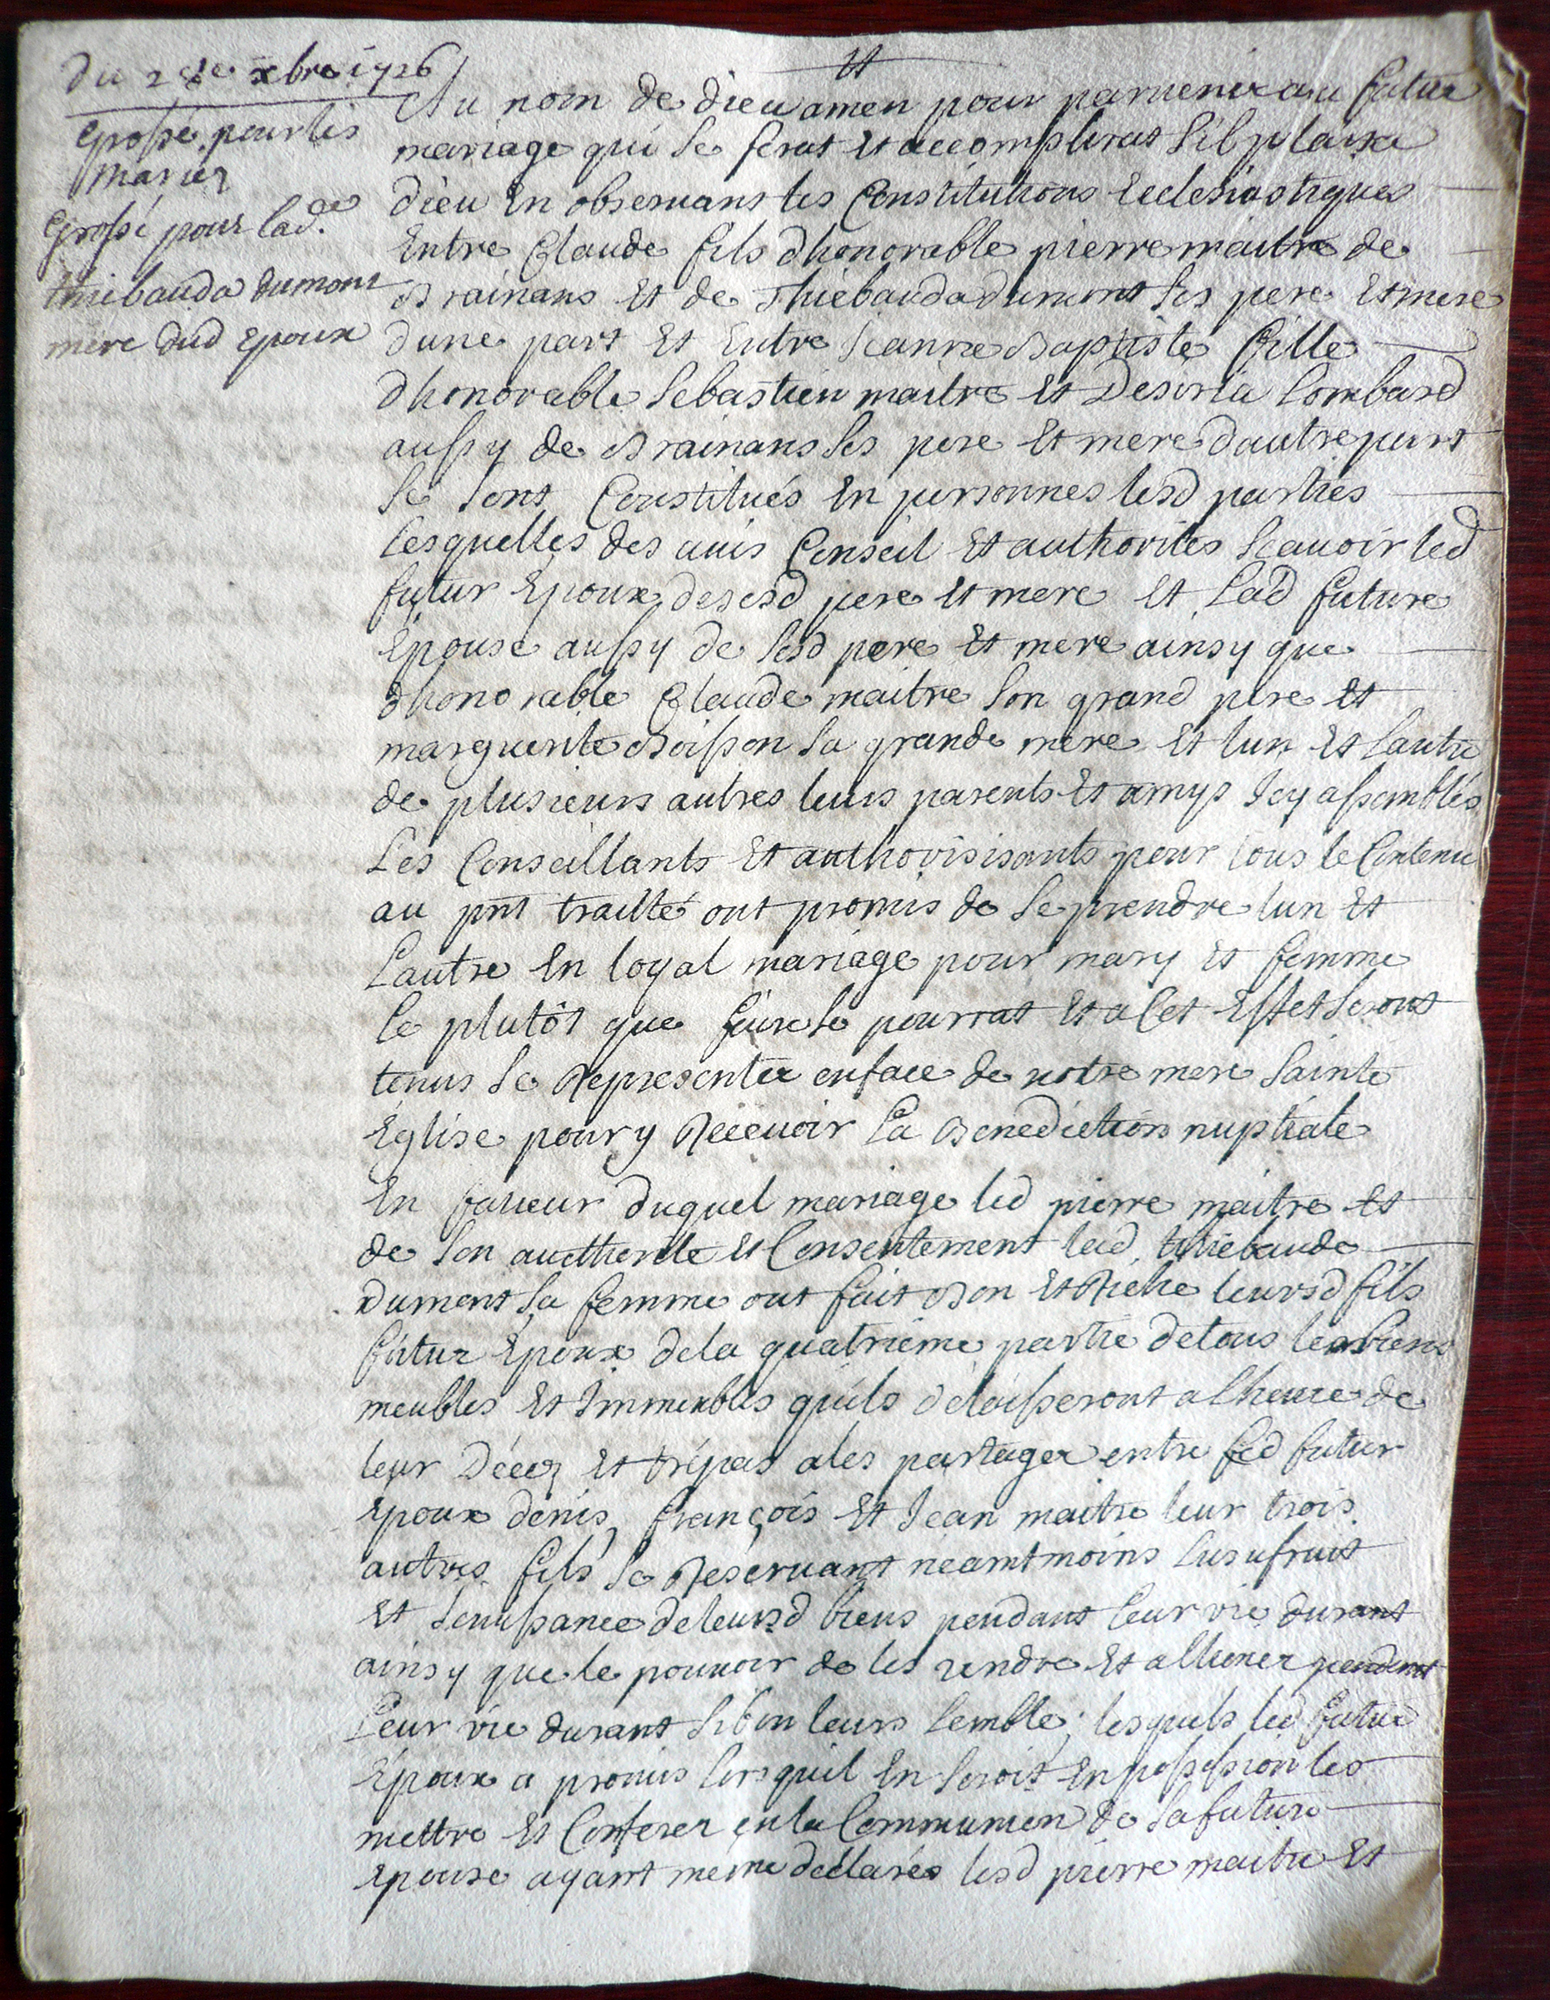 du 2e xbre 1726
Grossé pour les
Mariez
Grossé pour lad.e
thiebauda dumont
mere dud Epoux
Au nom de dieu amen pour paruenir au futur
mariage qui se ferat et accomplirat s'il plaira a
dieu En obseruans les Constitutions Ecclesiastiques
Entre Claude fils dhonorable pierre maitre de
Brainans Et de Thiebauda dumont ses pere Et mere
dune part Et Entre Jeanne Baptiste fille
dhonorable Sebastien maitre Et Desirea Lombard
aussy de Brainans ses pere Et mere dautre part
se sont Constitués En personnes lesd parties
Lesquelles des auis Conseil Et authorites scauoir led
futur Epoux desesd pere Et mere Et Lad future
Epouse aussy de sesd pere Et mere ainsy que
dhonorable Claude maitre son grand pere Et
marguerite Boisson sa grande mere Et lun Et lautre
de plusieurs autres leurs parents Et amys Icy assemblés
Les Conseillants Et authorisisants pour tous le Contenu
au pnt traitté ont promis de se prendre lun Et
Lautre En loyal mariage pour mary Et femme
le plutôt que faire se pourrat Et a Cet Effet seront
tenus se Representer enface de notre mere sainte
Eglise pour y Receuoir La Benediction nuptiale
En faueur duquel mariage led pierre maitre Et
de son aucthorite Et Consentement lad. thiebaude
Dumont sa femme ont fait Bon Et Riche leursd fils
futur Epoux dela quatrieme partie detous les biens
meubles Et Immeubles quils delaisseront a lheure de
leur Décez Et trépas ales partager entre led futur
Epoux denis, françois Et Jean maitre leur trois
autres fils se Réseruant néamtmoins Lusufruit
Et Jouissance deleursd biens pendant leur vie durant
ainsy que le pouuoir de les vendre Et allïener pendant
Leur vie durant si bon leurs semble; lesquels led futur
Epoux a promis lors quil En seroit En possession les
mettre Et Conferer en la Communion de sa future
Epouse ayant meme declarés lesd pierre maitre Et